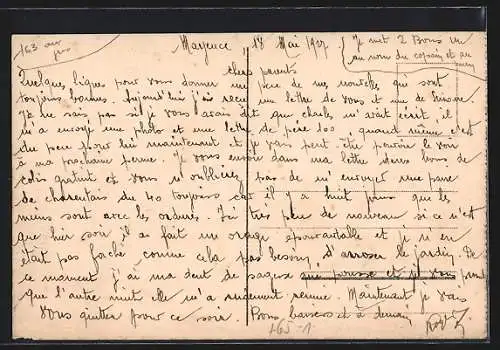 163 aux
Mayence 18 Mai 1927
Je met 2 Bons un
au nom du copain et au
chers parents
Quelques lignes pour vous donner un peu de mes nouvelles qui sont
toujours bonnes. Aujourd'hui j'ai reçu une lettre de vous et une de
Je ne sais pas si je vous avais dit que Charles m'avait écrit, il
m'a envoyé une photo et une lettre de quand même c'est
du peu payer lui maintenant et je vais peut-être pouvoir le voir
à ma prochaine perme. Je vous envoie dans ma lettre deux bons de
colis gratuit et vous n'oublierez pas de m'envoyer une paire
de charentais du 40 toujours car il y a huit jours que les
miens sont avec les ordures. J'ai très peu de nouveau si ce n'est
que hier soir il a fait un orage épouvantable et je n'en
était pas faché comme cela pas besoin d'arroser le jardin. De
ce moment j'ai ma dent de sagesse qui pousse et je vous
que l'autre nuit elle m'a rudement Maintenant je vais
vous quitter pour ce soir. Bons baisers et à demain